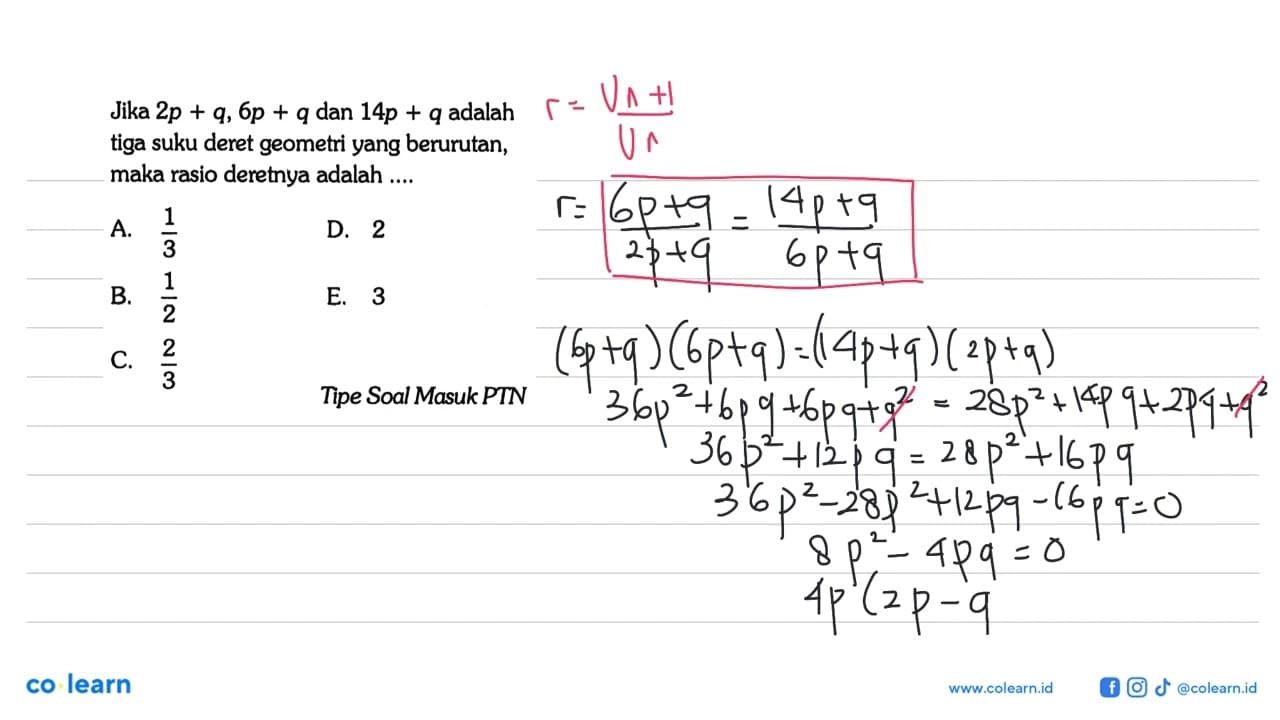 Jika 2p + q, 6p + q dan 14p + q adalah
tiga suku deret geometri yang berurutan,
maka rasio deretnya adalah ....
A. 1/3
B. 1/2
C. 2/3
D. 2
E. 3
Tipe Soal Masuk PTN
r = Un+1/Un
r = 6p+q/2p+q = 14p+q/6p+q
(6p+q)(6p+q)=(14p+q)(2p+q)
36p²+6pq+6pq+q² = 28p²+14pq+2pq+q²
36p²+12pq = 28p²+16pq
36p²-28p²+12pq-16pq=0
8p²-4pq=0
4p(2p-q
co learn
www.colearn.id
@colearn.id